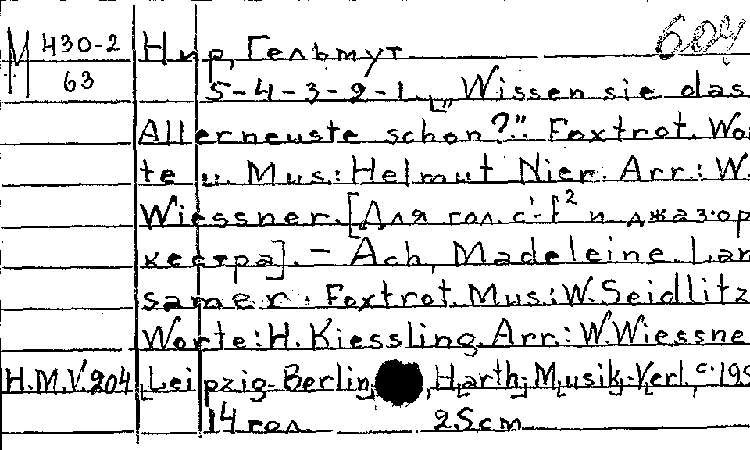 М 430-2 Нир, Гельмут 604
63 5-4-3-2-1. „Wissen sie das
Allerneuste schon?" Foxtrot. Wor-
te u. Mus.: Helmut Nier. Arr.: W.
Wiessner. [Для гол. c'-f² и джаз-ор-
кестра]. - Ach, Madeleine. Lang-
samer Foxtrot. Mus.: W. Seidlitz
Worte: H. Kiessling. Arr.: W. Wiessne
H.M.V. 204 Leipzig-Berlin, Harth-Musik-Verl., c. 195
14 гол. 25 cm